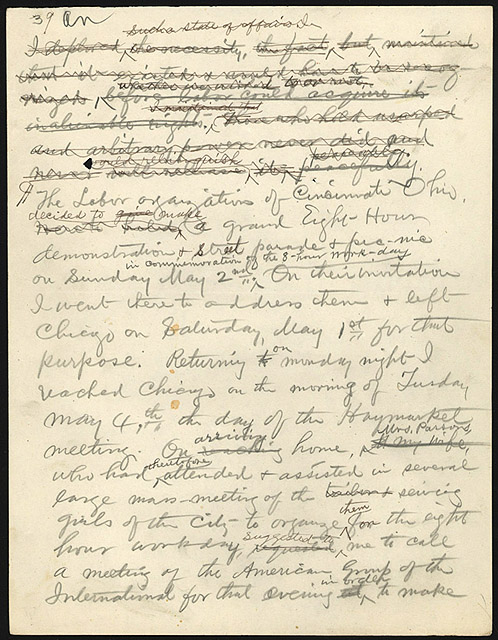 39 An
such a state of affairs I
I deplored the necessity, the fact, but, maintained
that it existed & would have to be recog-
nized, before labor could acquire its
inalienable rights. Men who held usurped
and arbitrary power never did and
never will release it peacefully.
¶ The Labor organizations of Cincinnati Ohio,
decided to give make
a grand Eight-Hour
demonstration & street parade & pic-nic
in commemoration of the 8-hour work-day
on Sunday May 2nd. On their invitation
I went there to address them & left
Chicago on Saturday, May 1st for that
purpose. Returning on monday night I
reached Chicago on the morning of Tusday
May 4th, the day of the Haymarket
arriving Mrs. Parsons
meeting. On home, my wife,
theretofore
who had attended & assisted in several
large mass-meeting of the tailor & sewing
them
girls of the City to organize for the eight
suggested to
hour workday, requested me to call
a meeting of the American Group of the
in order
International for that evening to make